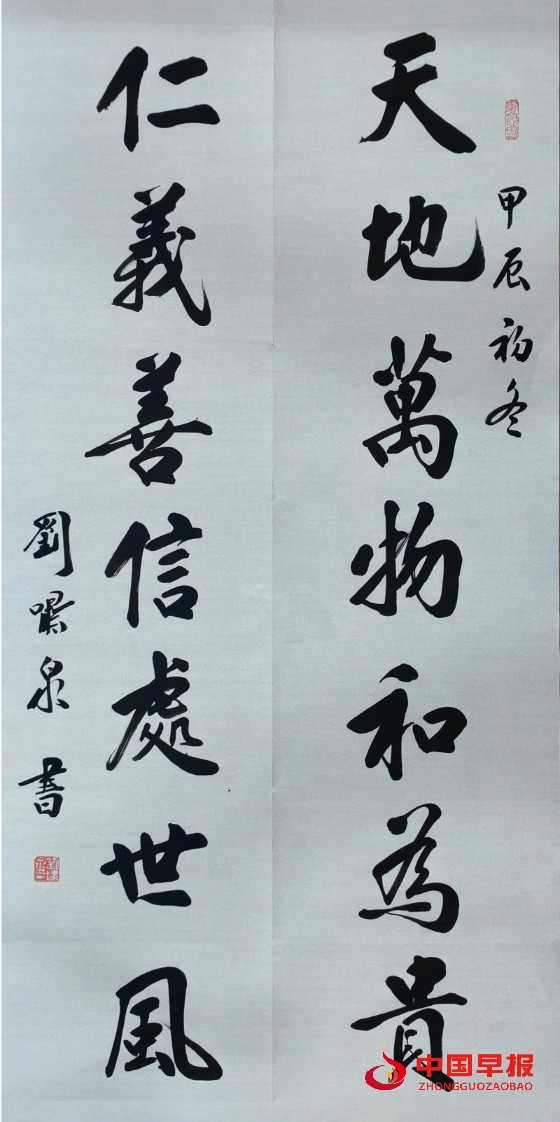 甲辰初冬
天地萬物和為貴
仁義善信處世風
劉
泉書
中国早报
ZHONGGUOZAOBAO